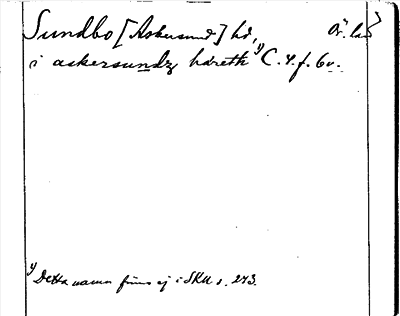 Sundbo [Askersund] hd, Ör. län
i askersundz häreth 1) C. 4. f. 6v.
1) Detta namn finns ej i SRU s. 273.